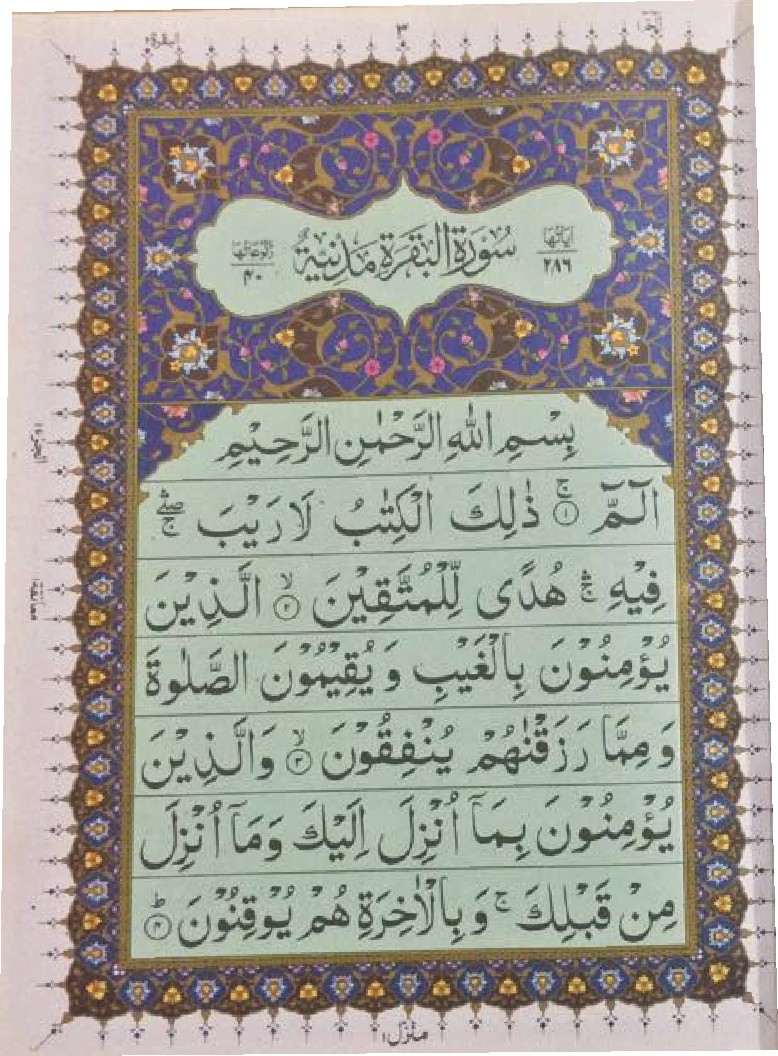 الٓمّٓ ١
٣
البقرة ٢
اٰیاتها ٢٨٦
سُوْرَةُ الْبَقَرَةِ مَدَنِيَّةٌ
رکوعاتها ٤٠
بِسْمِ اللّٰهِ الرَّحْمٰنِ الرَّحِيْمِ
الٓمّٓ ۚ‏ ١ ذٰلِكَ الْكِتٰبُ لَا رَيْبَ ۛۖۚ
فِيْهِ ۛۚ هُدًى لِّلْمُتَّقِيْنَ ۙ‏ ٢ الَّذِيْنَ
يُؤْمِنُوْنَ بِالْغَيْبِ وَ يُقِيْمُوْنَ الصَّلٰوةَ
وَ مِمَّا رَزَقْنٰهُمْ يُنْفِقُوْنَ ۙ‏ ٣ وَالَّذِيْنَ
يُؤْمِنُوْنَ بِمَاۤ اُنْزِلَ اِلَيْكَ وَمَاۤ اُنْزِلَ
مِنْ قَبْلِكَ ۚ وَ بِالْاٰخِرَةِ هُمْ يُوْقِنُوْنَ ؕ‏ ٤
معانقة
منزل ١